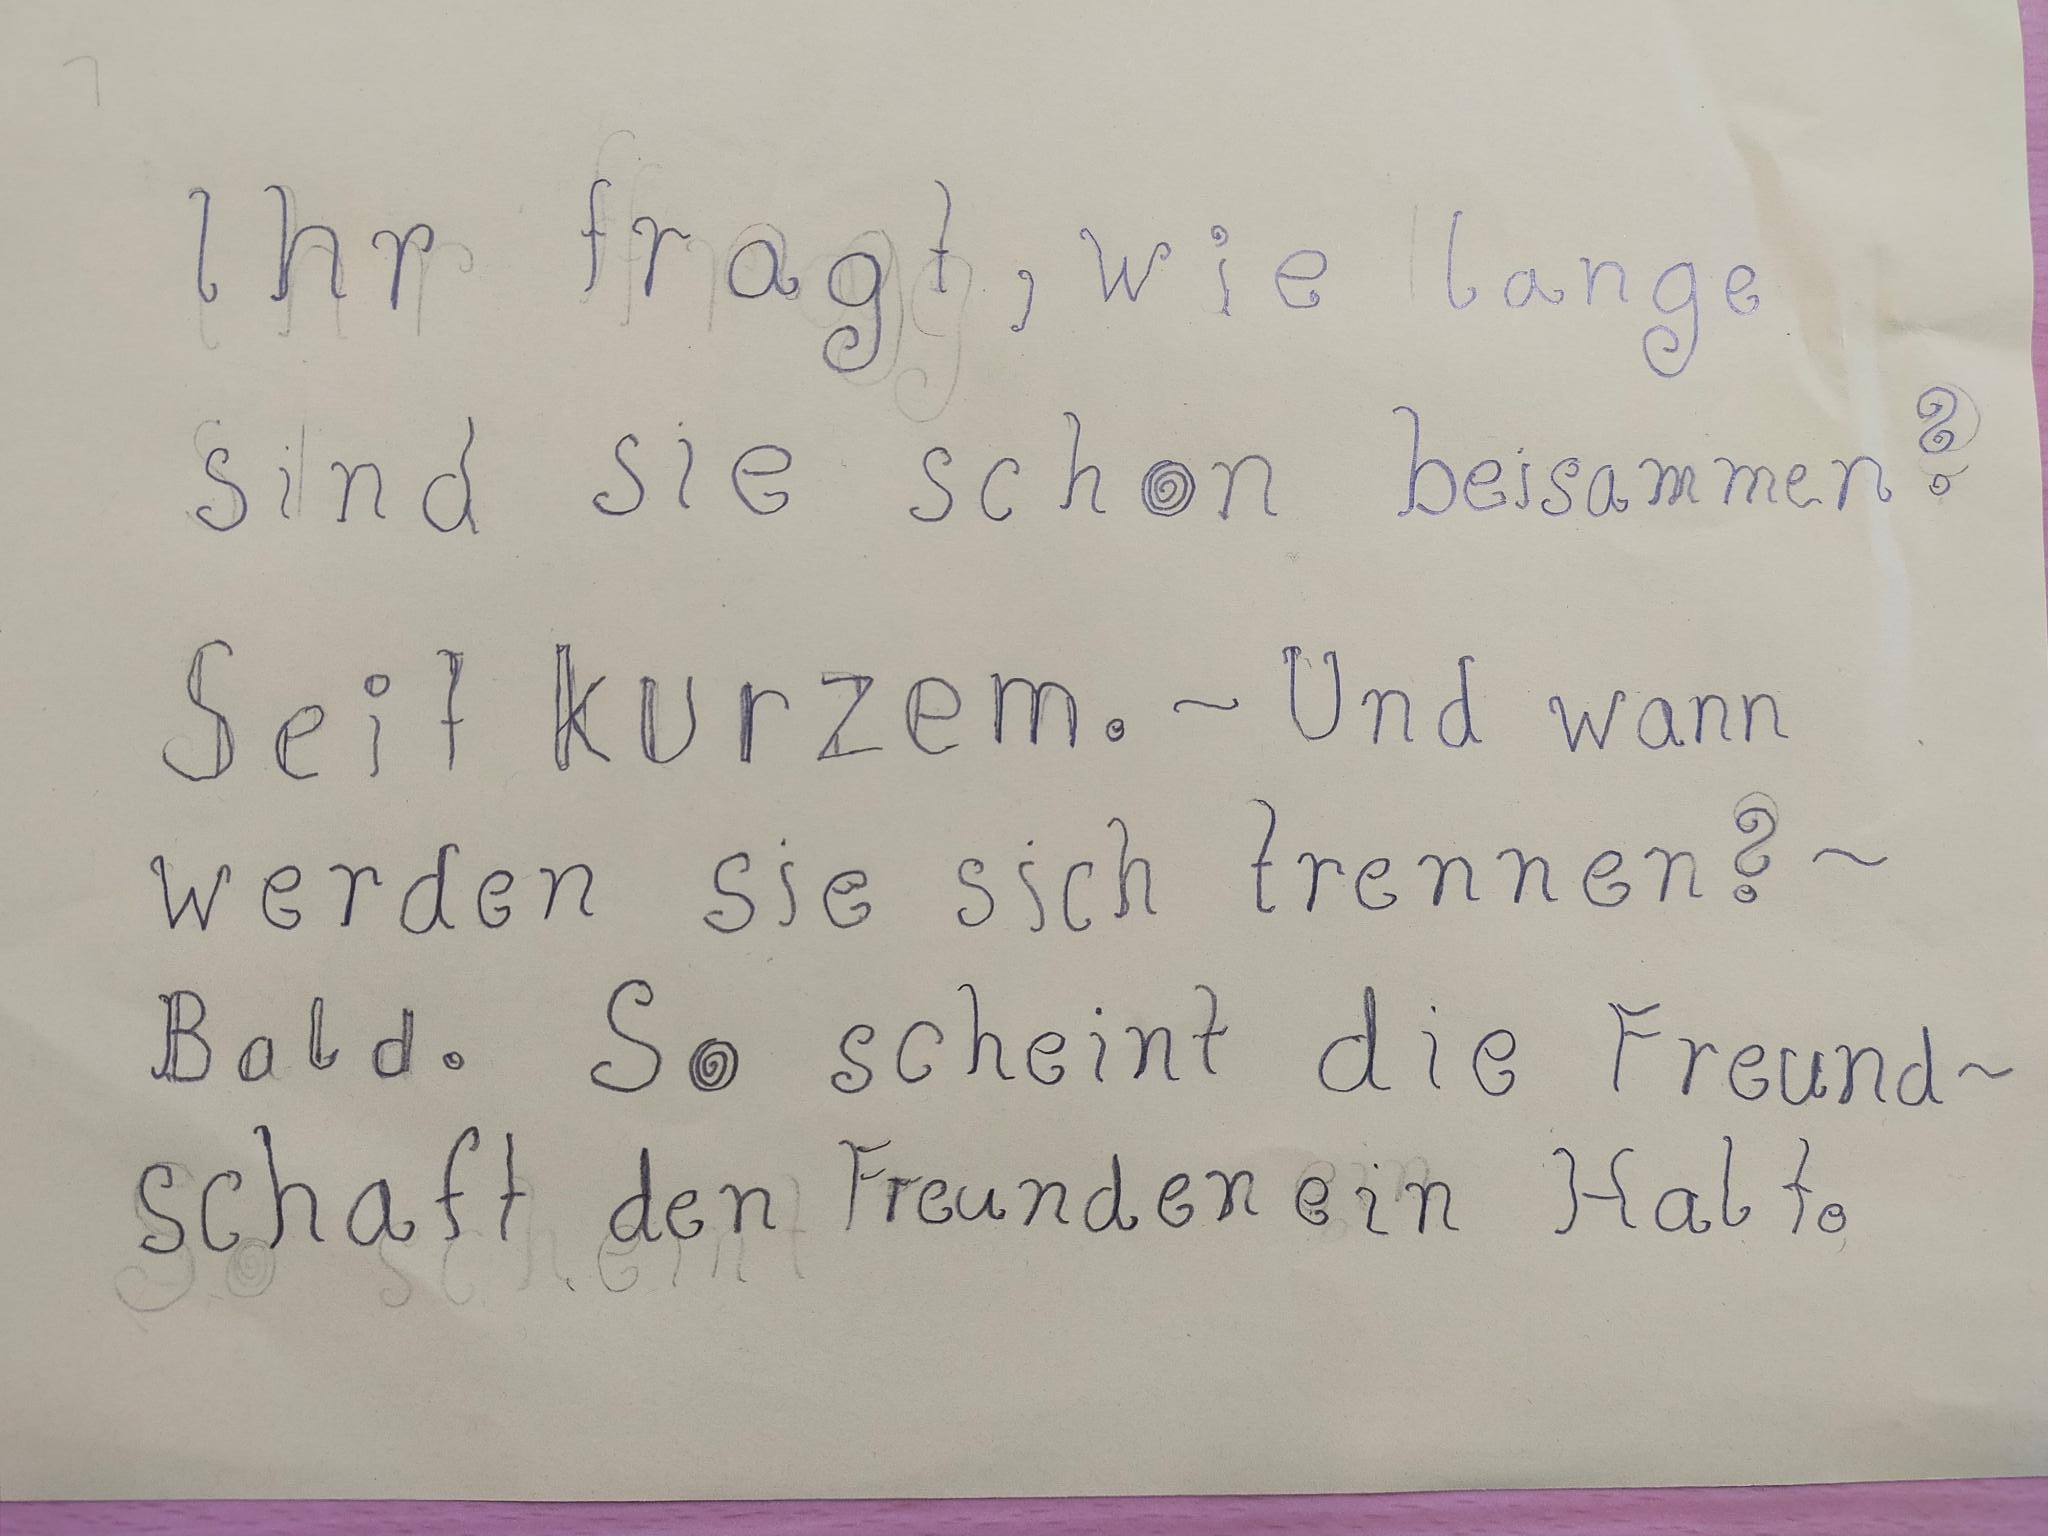 Ihr fragt, wie lange
sind sie schon beisammen?
Seit kurzem. ~ Und wann
werden sie sich trennen? ~
Bald. So scheint die Freund~
schaft den Freunden ein Halt.